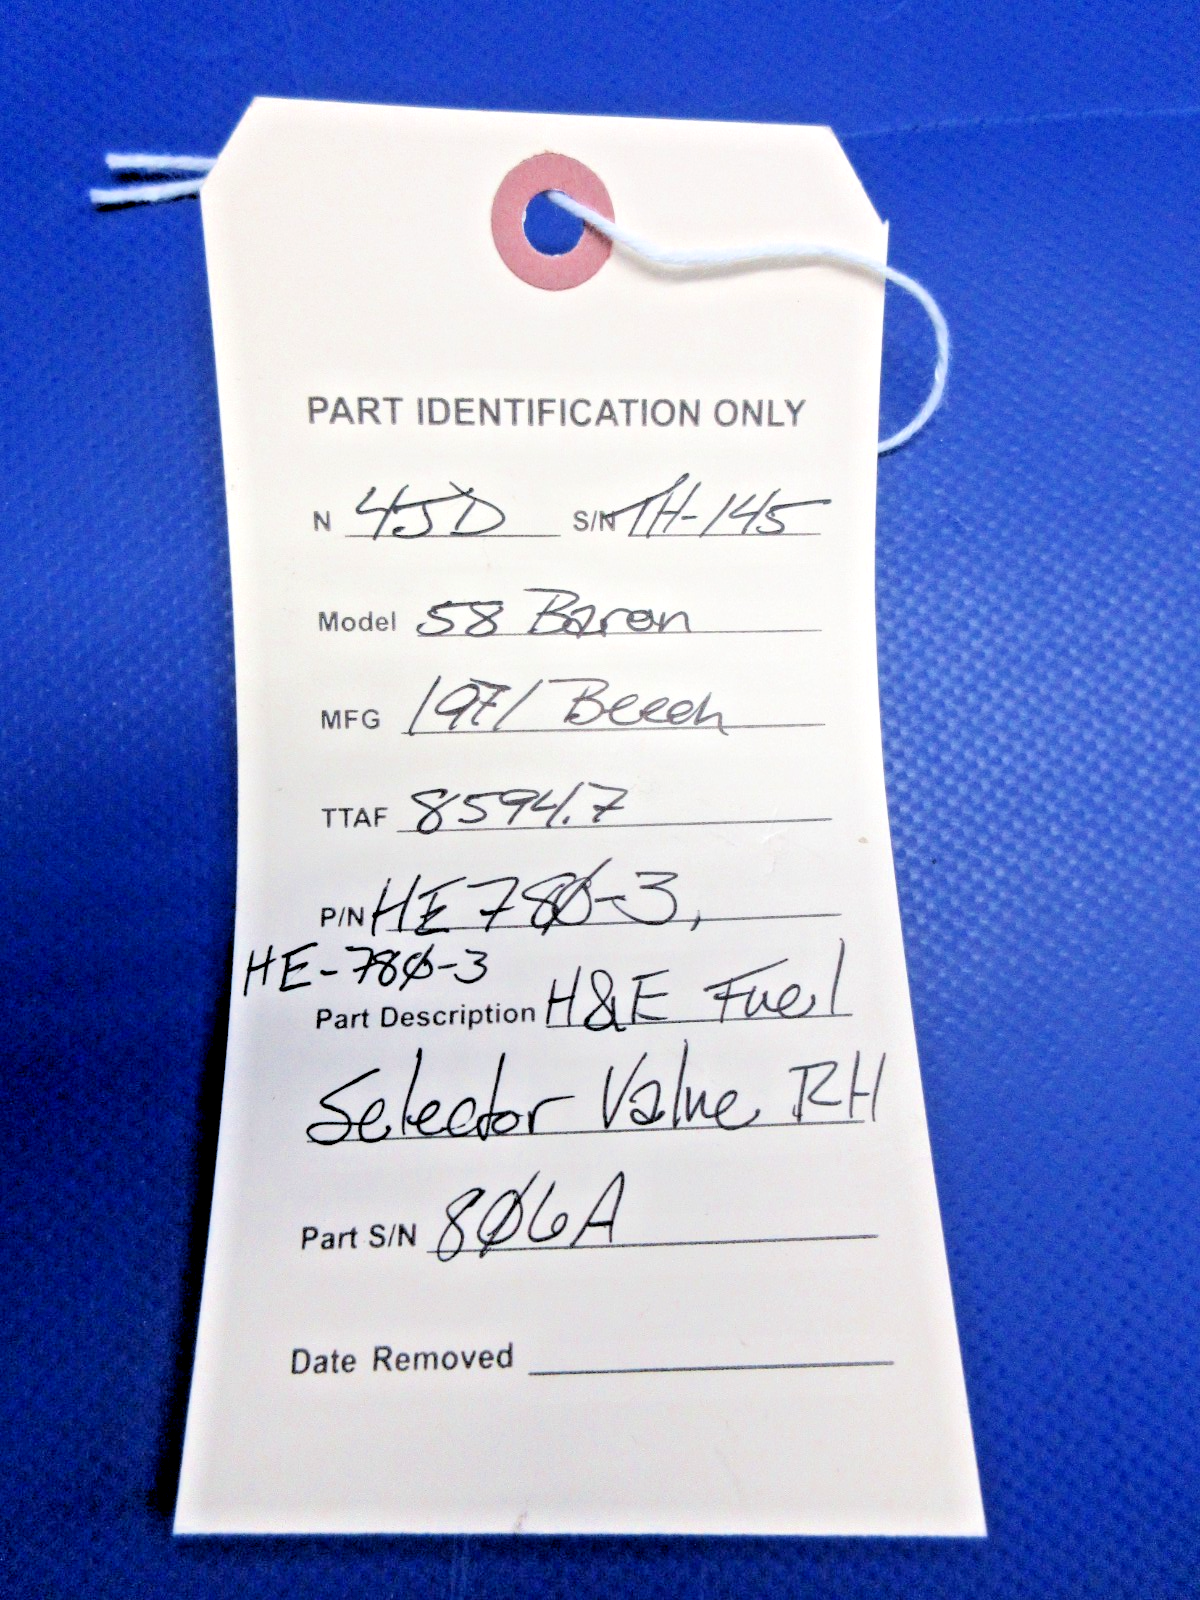 PART IDENTIFICATION ONLY
N 45D S/N TH-145
Model 58 Baron
MFG 1971 Beech
TTAF 8594.7
P/N HE780-3,
HE-780-3
Part Description H&E Fuel
Selector Valve RH
Part S/N 806A
Date Removed